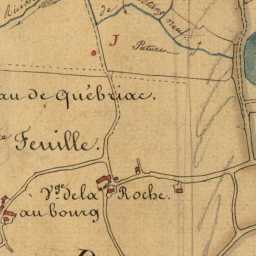 de
J
Pature
au de Québriac.
Feuille.
V.ge de la Roche.
au bourg